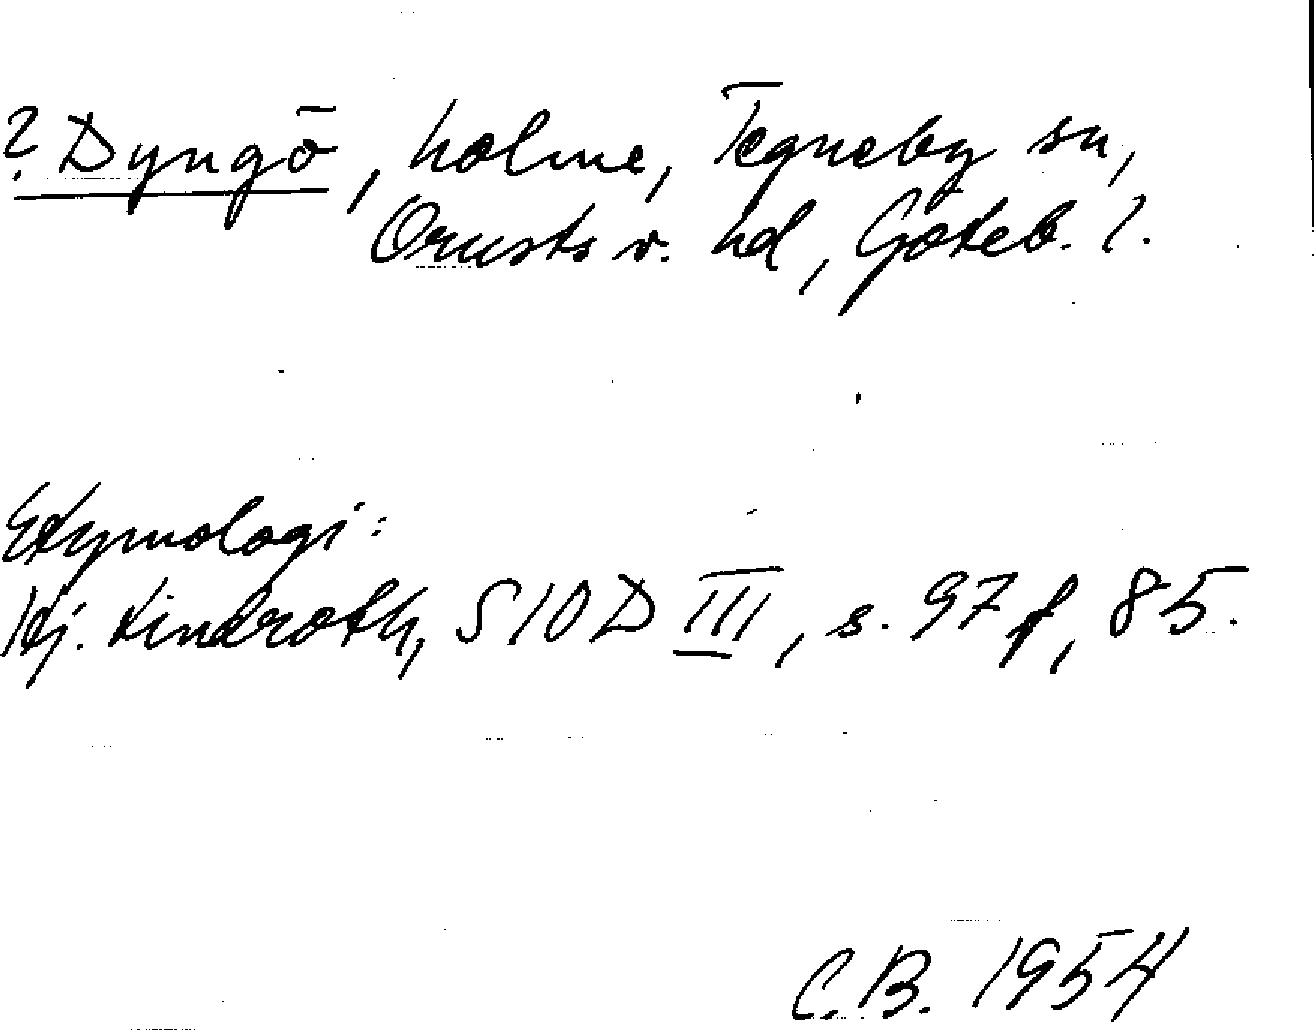 ? Dyngö, holme, Tegneby sn,
Orusts v. hd, Göteb. l.
Etymologi:
Hj. Lindroth, SIOD III, s. 97 f, 85.
C.B. 1954